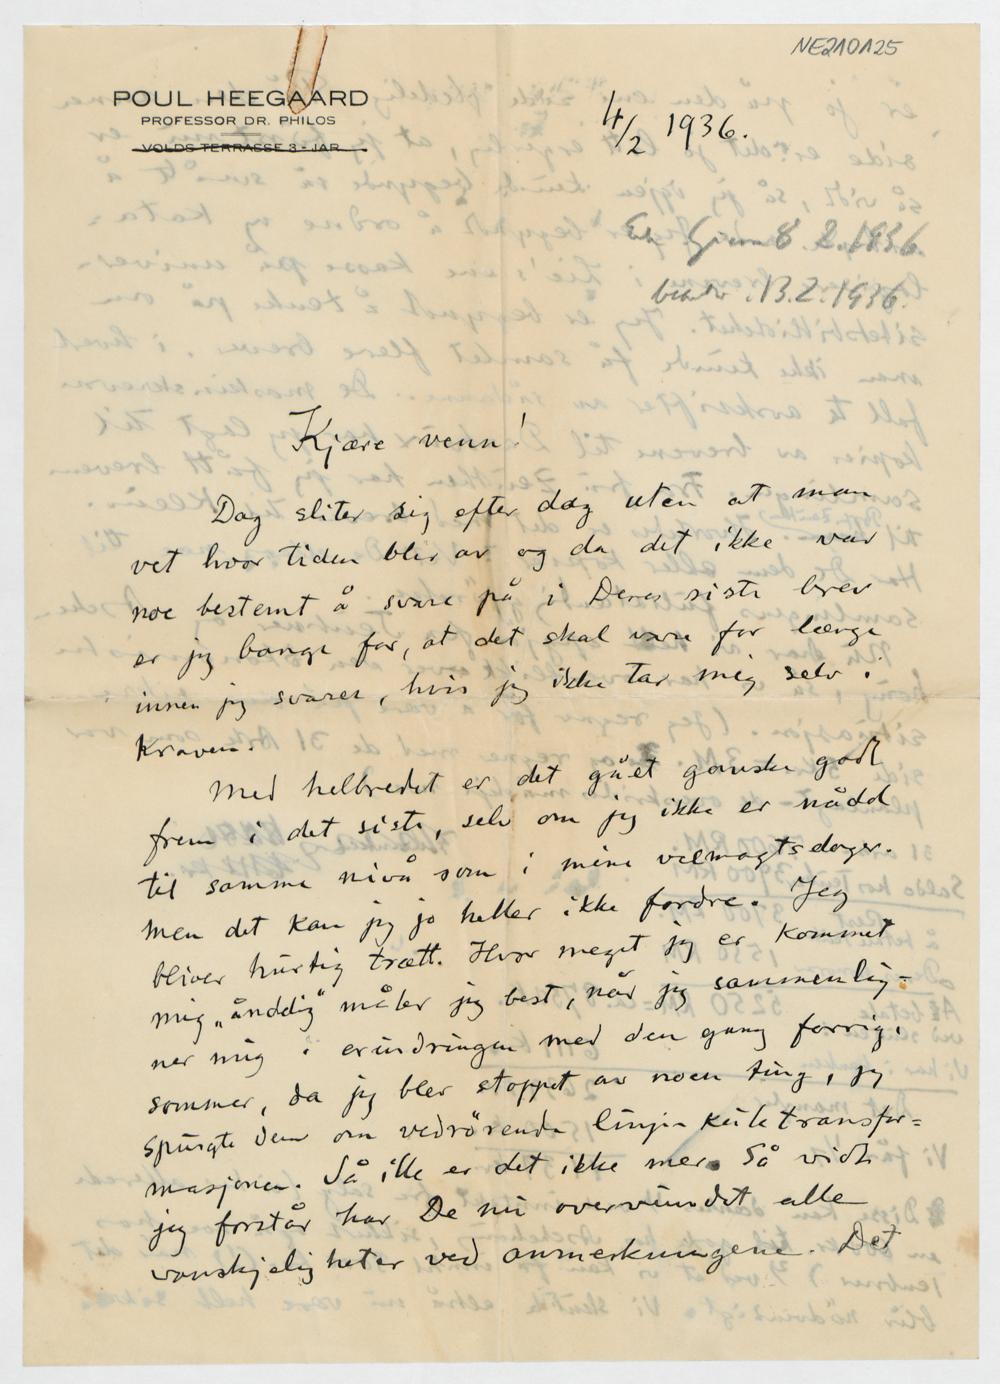 NE210A25
POUL HEEGAARD
PROFESSOR DR. PHILOS
VOLDS TERRASSE 3 - JAR
4/2 1936.
8.2.1936.
13.2.1936.
Kjære venn!
Dag sliter sig efter dag uten at man
vet hvor tiden blir av og da det ikke var
noe bestemt å svare på i Deres siste brev
er jeg bange for, at det skal vare for længe
innen jeg svarer, hvis jeg ikke tar mig selv i
kraven.
Med helbredet er det gået ganske godt
frem i det siste, selv om jeg ikke er nådd
til samme nivå som i mine velmagtsdager.
Men det kan jeg jo heller ikke fordre. Jeg
bliver hurtig træt. Hvor meget jeg er kommet
mig „åndelig" måler jeg best, når jeg sammenlig-
ner mig i erindringen med den gang forrige
sommer, da jeg blev stoppet av noen ting, jeg
spurgte Dem om vedrörende linje-kule transfor=
masjonen. Så ille er det ikke mer. Så vidt
jeg forstår har De nu overvundet alle
vanskjeligheter ved anmerkningene. Det